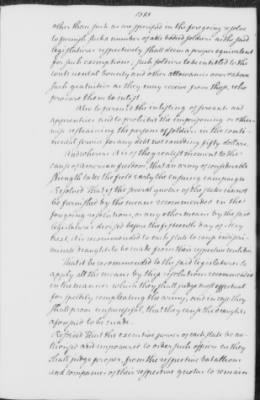 other than such as are specified in the foregoing resolve
to furnish such a number of able bodied soldiers as the said
legislatures respectively shall deem a proper equivalent
for such exemptions; such soldiers to be entitled to the
continental bounty and other allowances over & above
such gratuities as they may receive from those who
procure them to enlist.
Also to permit the enlisting of servants and
apprentices and to prohibit the imprisoning or other-
wise restraining the persons of soldiers in the conti-
nental service for any debt not exceeding fifty dollars.
And whereas it is of the greatest moment to the
cause of American freedom that an army of considerable
strength take the field early the ensuing campaign
Resolved That if the several quotas of the states cannot
be furnished by the means recommended in the
foregoing resolutions, or any other means by the said
legislatures devised before the fifteenth day of May
next, it is recommended to each state to cause indiscri-
minate draughts to be made from their respective militia
That it be recommended to the said legislatures to
apply all the means by this resolution recommended
in the manner which they shall judge most effectual
for speedily completing the army, and in case they
shall prove unsuccessful, that they cause the draughts
aforesaid to be made.
Resolved That the executive power of each state be au-
thorized and impowered to order such officers as they
shall judge proper from the respective battalions
and companies of their respective quotas to remain